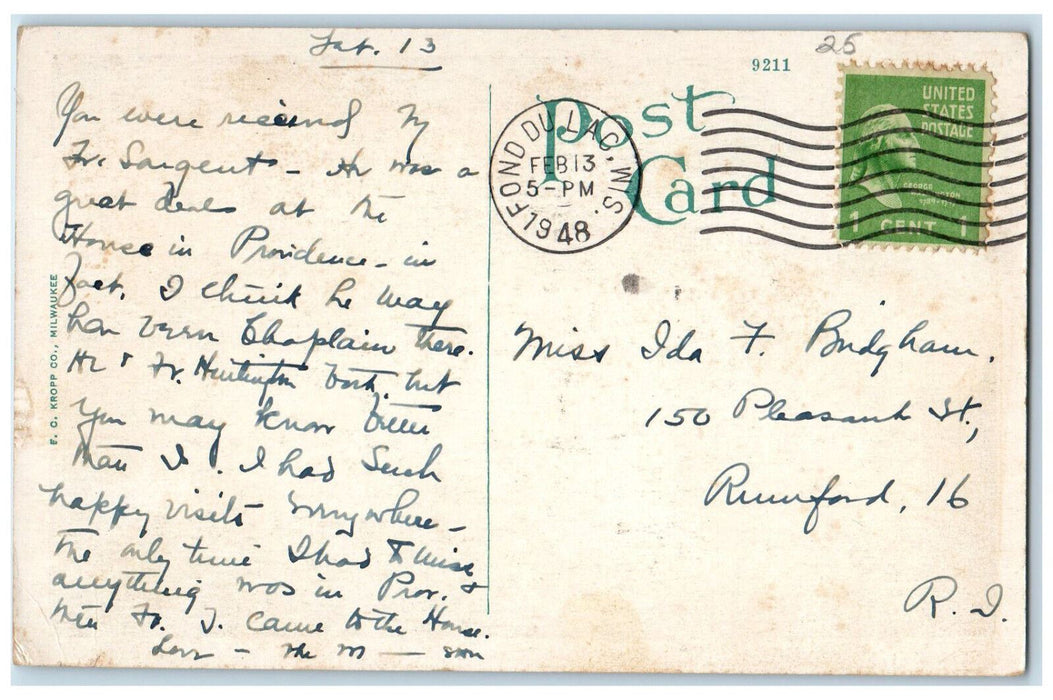 Sat. 13
25
9211
Post
Card
UNITED
STATES
POSTAGE
GEORGE WASHINGTON
1 CENT 1
FOND DU LAC, WIS.
FEB 13
5-PM
1948
You were friend of
Fr. Sargent - He was a
great deal at the
House in Providence - in
fact, I think he may
have been Chaplain there.
He & Fr. Huntington both, but
you may know better
than I. I had such
happy visits everywhere -
the only time I had to miss
anything was in Prov. &
when Fr. J. came to the House.
Love -
F. C. KROPP CO., MILWAUKEE
Miss Ida F. Bridgham.
150 Pleasant St.,
Rumford, 16
R.I.